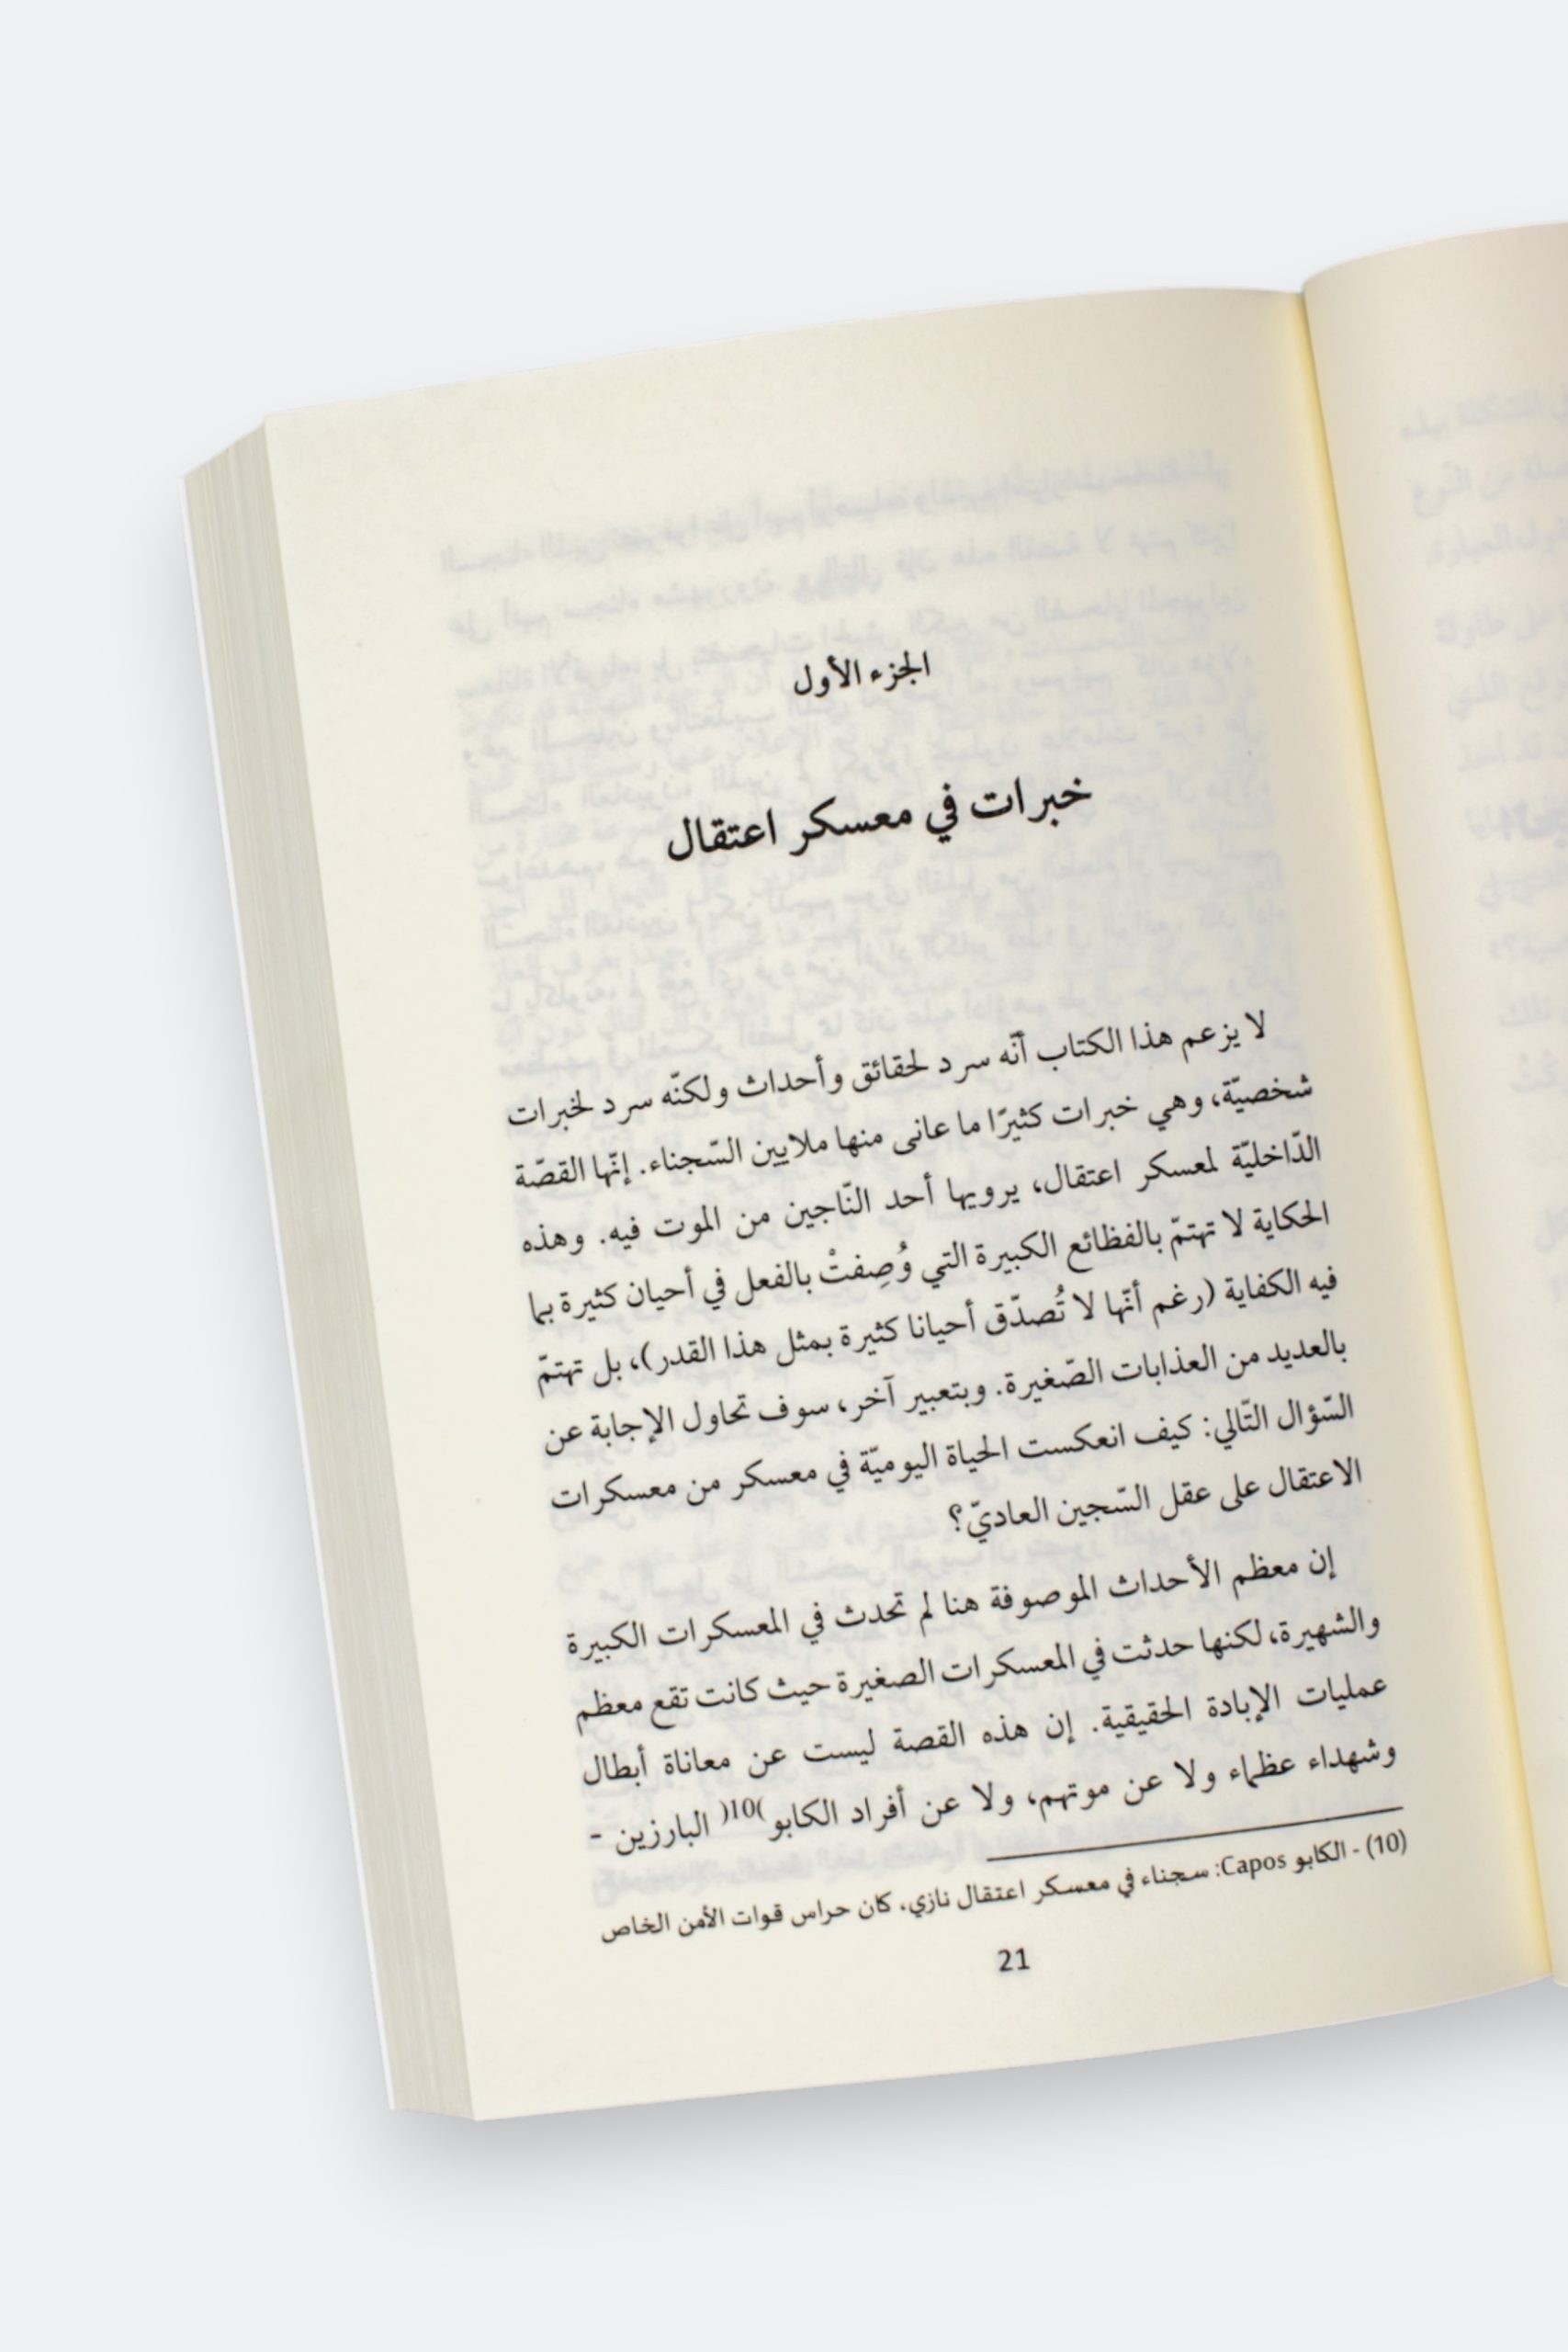 الجزء الأول
خبرات في معسكر اعتقال
لا يزعم هذا الكتاب أنّه سرد لحقائق وأحداث ولكنّه سرد لخبرات
شخصيّة، وهي خبرات كثيرًا ما عانى منها ملايين السّجناء. إنّها القصّة
الدّاخليّة لمعسكر اعتقال، يرويها أحد النّاجين من الموت فيه. وهذه
الحكاية لا تهتمّ بالفظائع الكبيرة التي وُصِفتْ بالفعل في أحيان كثيرة بما
فيه الكفاية (رغم أنّها لا تُصدّق أحيانا كثيرة بمثل هذا القدر)، بل تهتمّ
بالعديد من العذابات الصّغيرة. وبتعبير آخر، سوف تحاول الإجابة عن
السّؤال التّالي: كيف انعكست الحياة اليوميّة في معسكر من معسكرات
الاعتقال على عقل السّجين العاديّ؟
إن معظم الأحداث الموصوفة هنا لم تحدث في المعسكرات الكبيرة
والشهيرة، لكنها حدثت في المعسكرات الصغيرة حيث كانت تقع معظم
عمليات الإبادة الحقيقية. إن هذه القصة ليست عن معاناة أبطال
وشهداء عظماء ولا عن موتهم، ولا عن أفراد الكابو)10( البارزين -
(10) - الكابو Capos: سجناء في معسكر اعتقال نازي، كان حراس قوات الأمن الخاص
21